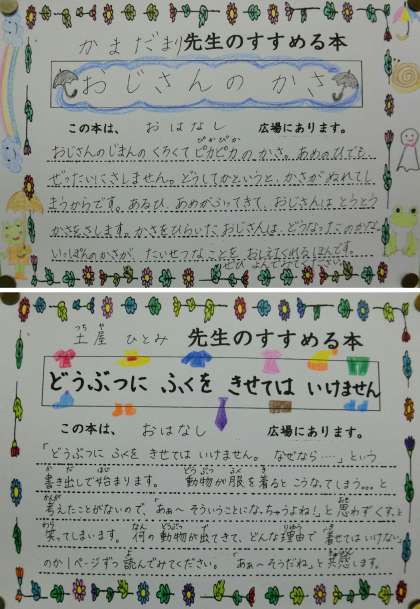 かまだまり 先生のすすめる本
おじさんの かさ
この本は、 おはなし 広場にあります。
おじさんのじまんの くろくて ピカピカの かさ。あめのひでも
ぴかぴか
ぜったいにさしません。どうしてかというと、かさがぬれてし
まうからです。あるひ、あめがふってきて、おじさんは とうとう
かさをさします。かさをひらいた、おじさんは、どうなったのかな
いっぽんのかさが、たいせつなことを おしえてくれるほんです
ぜひ よんでください。
土屋 ひとみ 先生のすすめる本
つち や
どうぶつに ふくを きせては いけません
この本は、 おはなし 広場にあります。
「どうぶつに ふくを きせては いけません。なぜなら‥‥」という
書き出しで始まります。 動物が服を着ると こうなってしまう。。。と
考えたことがないので、「あぁ〜 そういうことになっちゃうよね!」と 思わず くすっと
笑ってしまいます。 何の 動物が出てきて、どんな理由で 着せてはいけない
のか 1ページずつ 読んでみてください。 「あぁ〜そうだね。」と共感します。